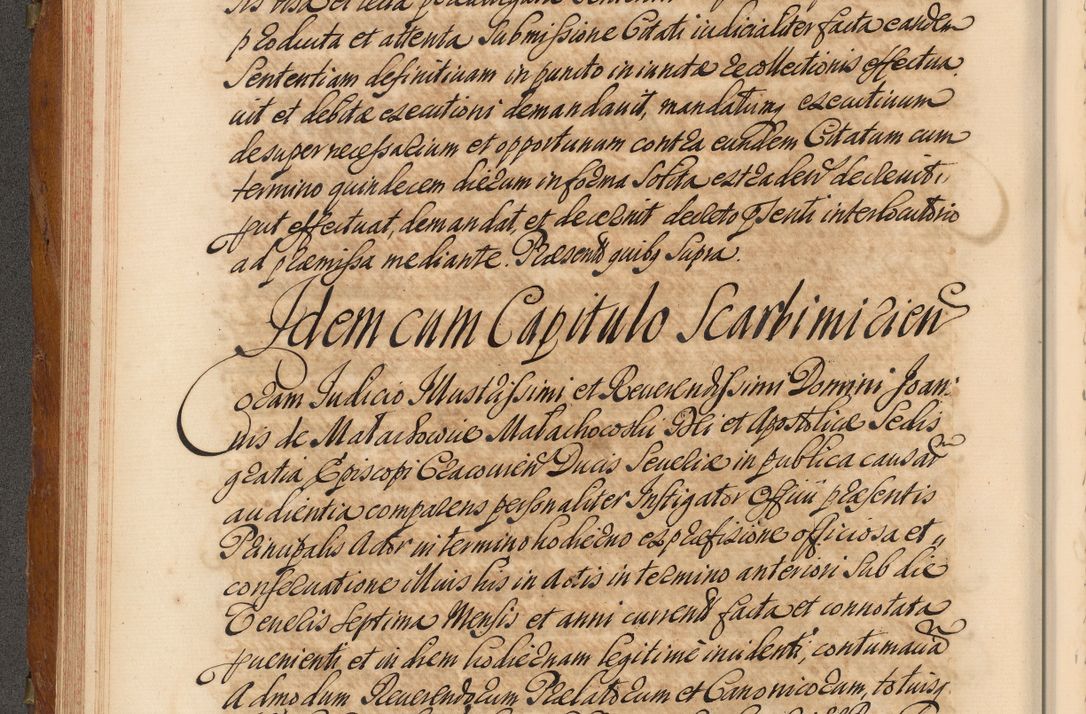 producta et attenta Submissione Citati iudicialiter facta eandem
Sententiam definitivam in puncto iniunctæ recollectionis effectua,
uit et debitæ executioni demandavit, mandatumq executivum
desuper necessarium et opportunum contra eundem Citatum cum
termino quindecem dierum in forma Solita extraden decrevit,
put effectuat, demandat, et decernit decreto psenti interlocutorio
ad præmissa mediante. Præsentt quibq supra.
Idem cum Capitulo Scarbimirien
Coram Iudicio Illustrissimi et Reverendissimi Domini Joan:
nis de Malachowice Malachowski Dei et Apostolicæ Sedis
gratia Episcopi Cracovien Ducis Severiæ in publica causar
audientia comparens personaliter Instigator Officii præsentis
Principalis Actor in termino hodierno ex præfixione officiosa et
conservatione illius his in Actis in termino anteriori sub die
Veneris Septima Mensis et anni currentt facta et connotata
pueniente, et in diem hodiernam legitime incidenti, contumacia
Admodum Reverendorum Prælatorum et Canonicorum, totiusq